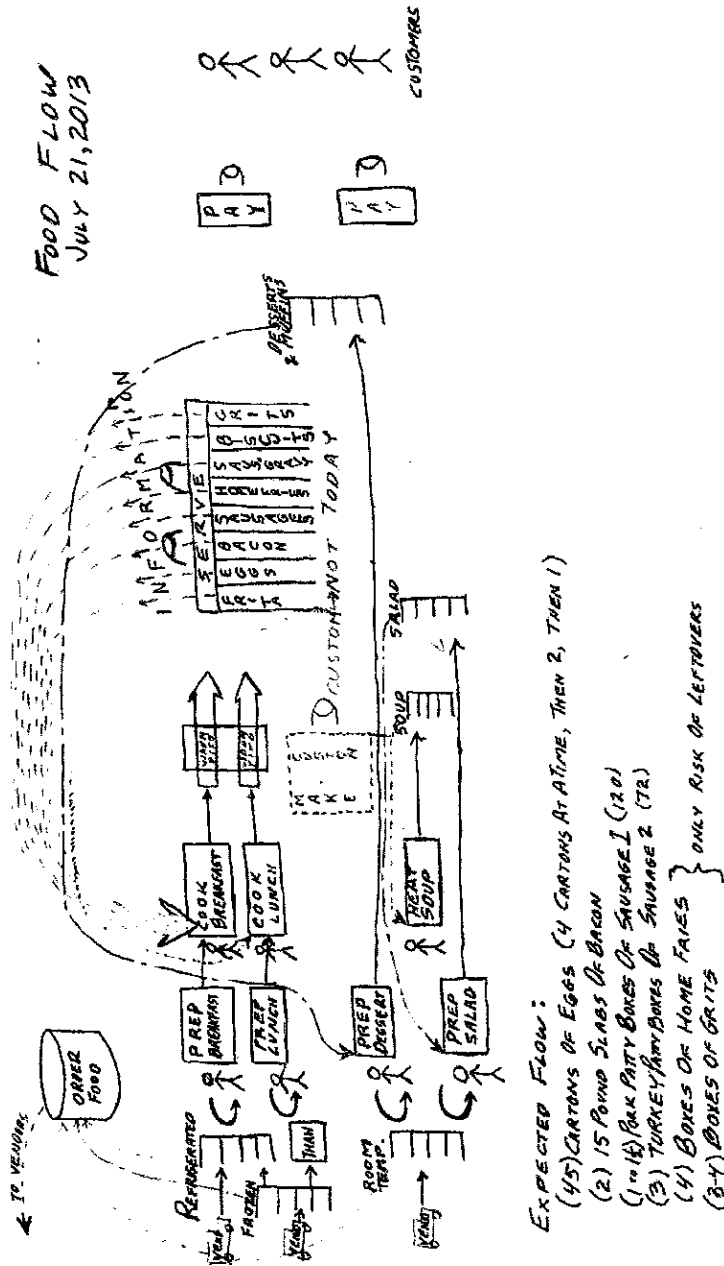 FOOD FLOW
JULY 21, 2013
← TO VENDORS
ORDER
FOOD
INFORMATION
REFRIGERATED
FROZEN
THAW
ROOM
TEMP.
PREP
BREAKFAST
PREP
LUNCH
PREP
DESSERT
PREP
SALAD
COOK
BREAKFAST
COOK
LUNCH
HEAT
SOUP
MAKE
CUSTOM
CUSTOM → NOT TODAY
SERVE
EGGS
BACON
SAUSAGES
BISCUITS
GRITS
SOUP
SALAD
DESSERTS
& MUFFINS
PAY
PAY
CUSTOMERS
EXPECTED FLOW:
(45) CARTONS OF EGGS (4 CARTONS AT A TIME, THEN 2, THEN 1)
(2) 15 POUND SLABS OF BACON
PORK PATTY BOXES OF SAUSAGE 1 (120)
(3) TURKEY PATTY BOXES OF SAUSAGE 2 (72)
(4) BOXES OF HOME FRIES
(3-4) BOXES OF GRITS
} ONLY RISK OF LEFTOVERS